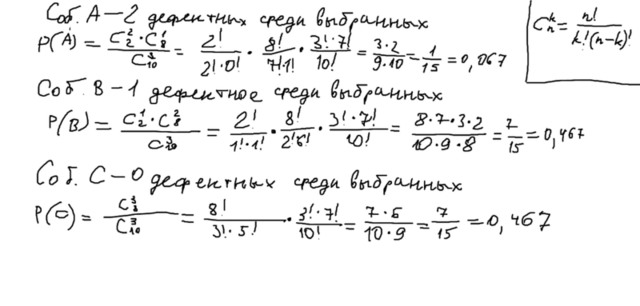 Соб. А – 2 дефектных среди выбранных
P(A) = C₂²·C₈¹ / C₁₀³ = 2!/(2!·0!) · 8!/(7!·1!) · 3!·7!/10! = 3·2/(9·10) = 1/15 = 0,067
C_n^k = n!/(k!(n-k)!)
Соб. В – 1 дефектное среди выбранных
P(B) = C₂¹·C₈² / C₁₀³ = 2!/(1!·1!) · 8!/(2!6!) · 3!·7!/10! = 8·7·3·2/(10·9·8) = 7/15 = 0,467
Соб. С – 0 дефектных среди выбранных
P(C) = C₈³ / C₁₀³ = 8!/(3!·5!) · 3!·7!/10! = 7·6/(10·9) = 7/15 = 0,467